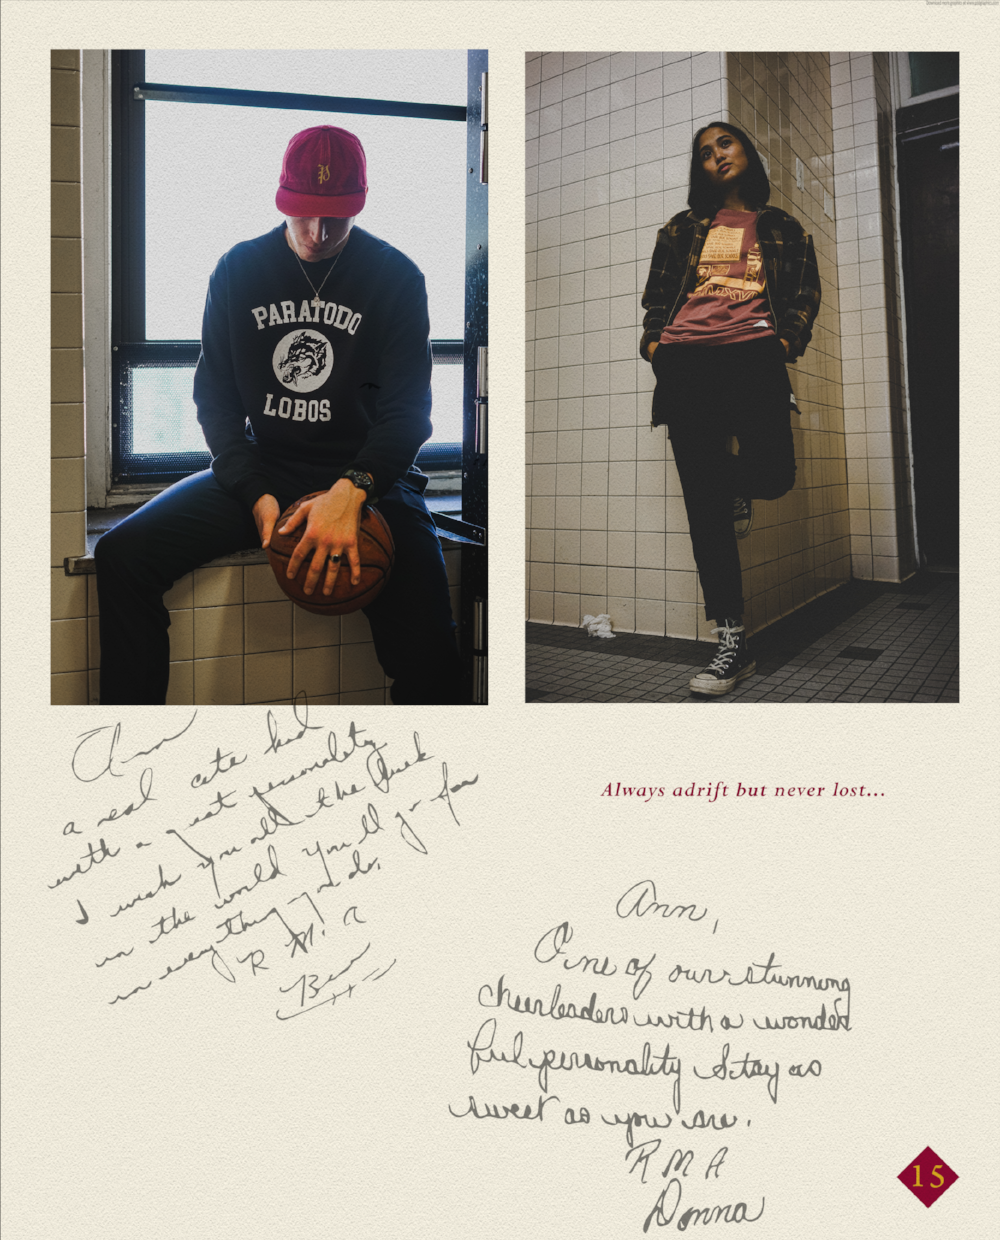 P
PARATODO
LOBOS
Ann
a real cute kid
with a great personality
I wish you all the luck
in the world you'll go far
in everything you do.
R M A
Ben
Always adrift but never lost...
Ann,
One of our stunning
cheerleaders with a wonder
ful personality Stay as
sweet as you are.
R M A
Donna
15